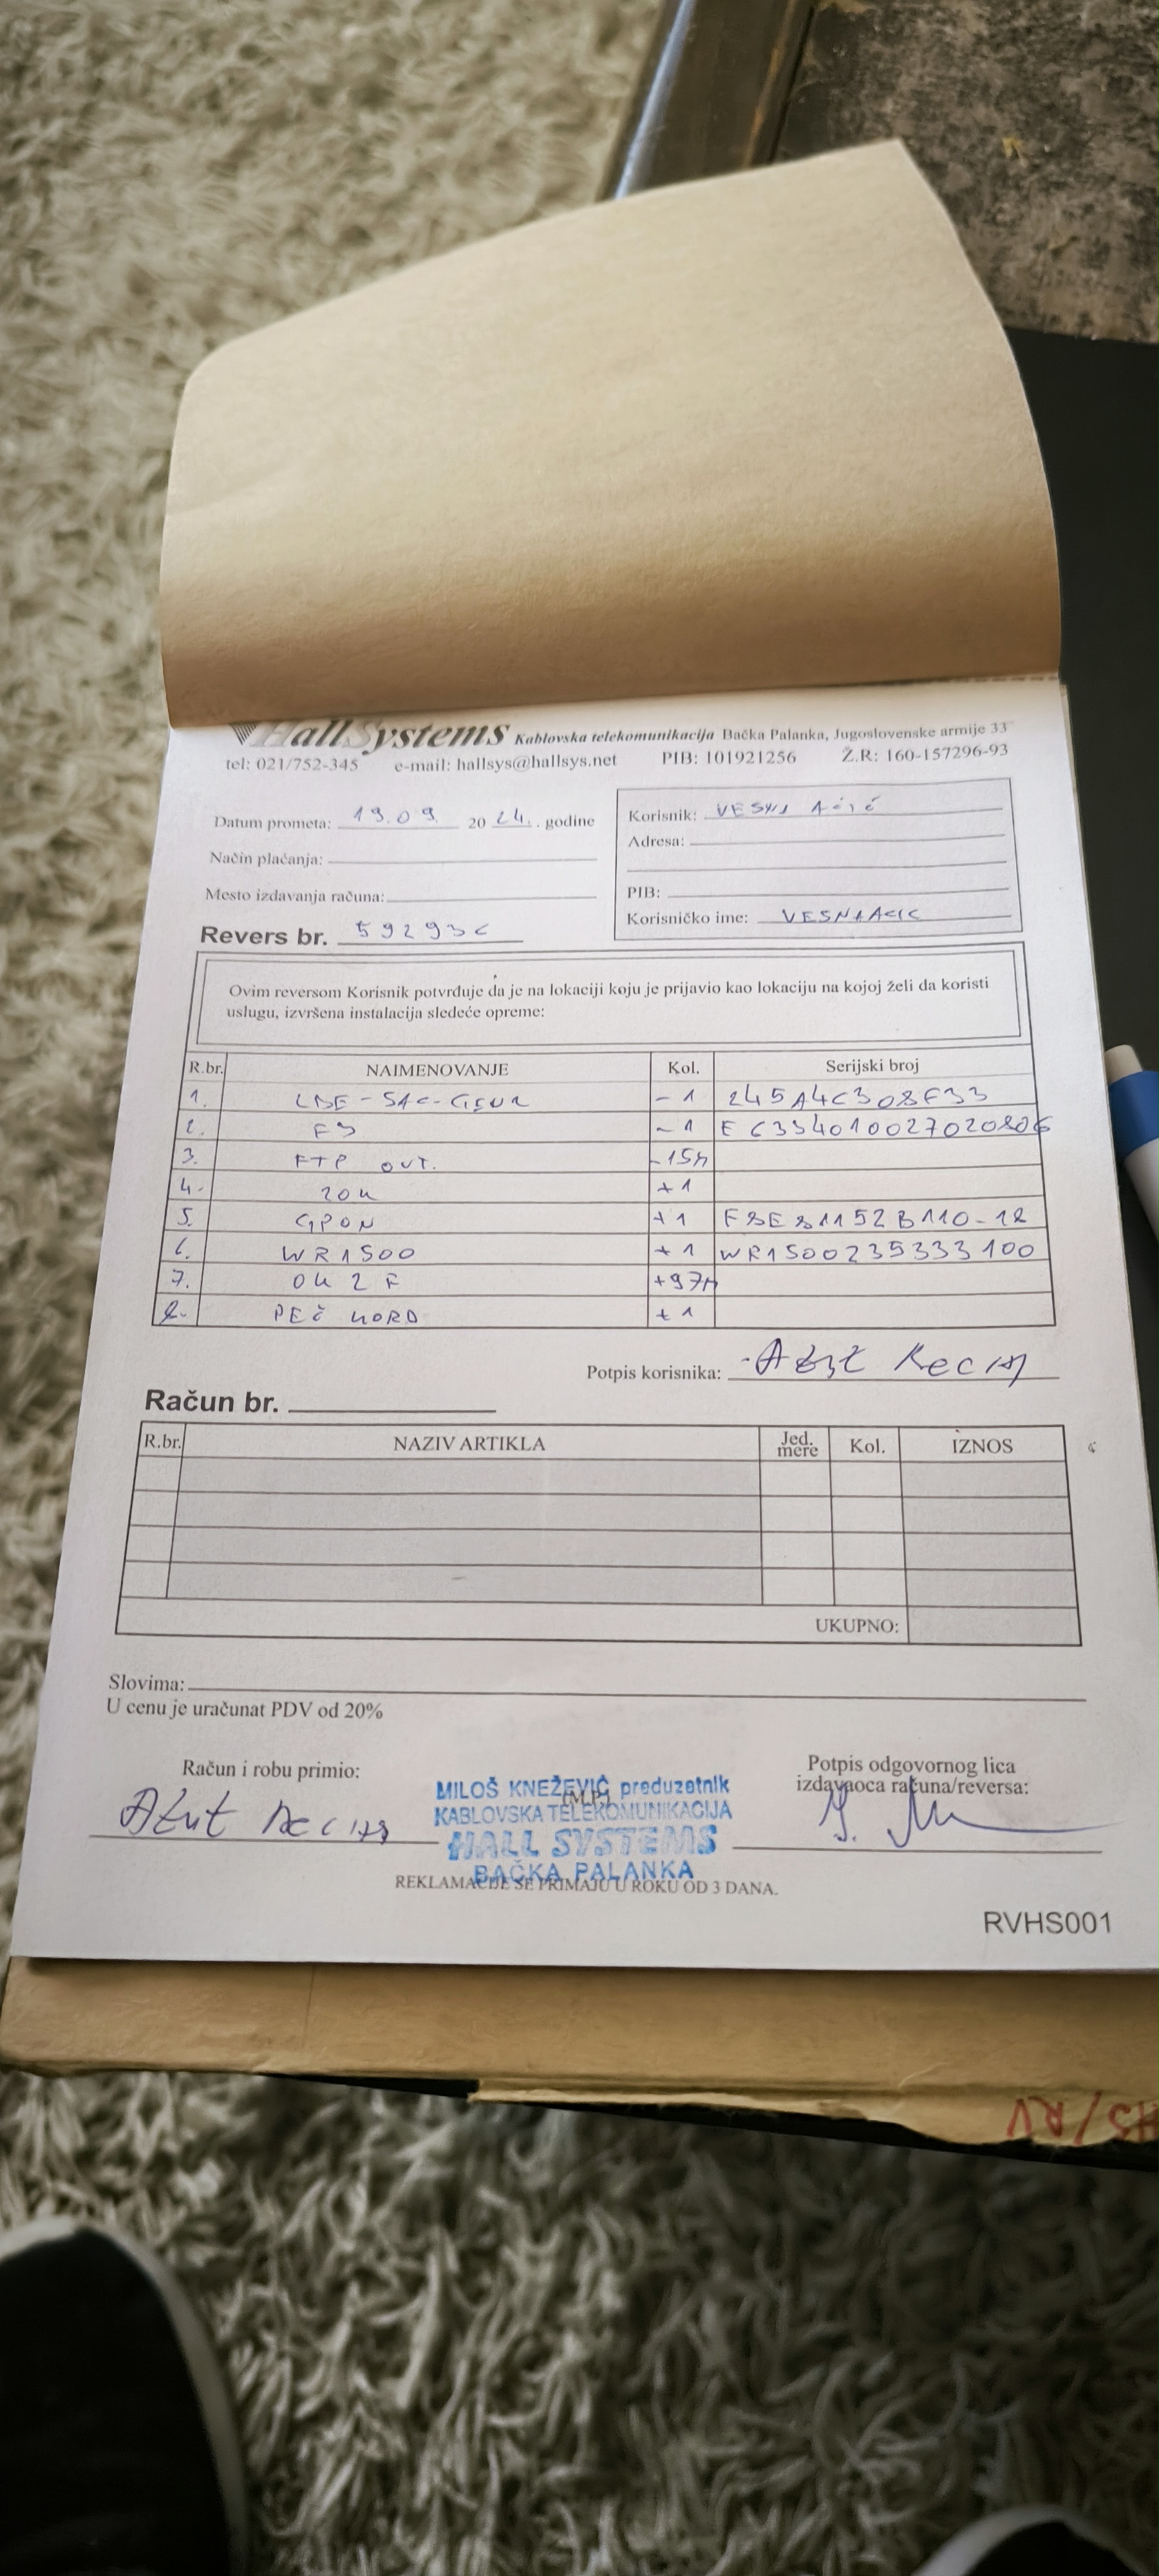 HallSystems Kablovska telekomunikacija Bačka Palanka, Jugoslovenske armije 33
tel: 021/752-345 e-mail: hallsys@hallsys.net PIB: 101921256 Ž.R: 160-157296-93
Datum prometa: 19.09. 20 24. . godine
Način plaćanja:
Mesto izdavanja računa:
Revers br. 592936
Korisnik: VESNA Ačić
Adresa:
PIB:
Korisničko ime: VESNAACIC
Ovim reversom Korisnik potvrđuje da je na lokaciji koju je prijavio kao lokaciju na kojoj želi da koristi
uslugu, izvršena instalacija sledeće opreme:
R.br. NAIMENOVANJE Kol. Serijski broj
1. LBE-5AC-GEN2 -1 245A4C308F33
2. F3 -1 EC334010027020806
3. FTP OUT. -15m
4. ZOK +1
5. GPON +1 F8E81152B110-12
6. WR1500 +1 WR1500235333100
7. OK 2 F +97m
8. PEČ KORD +1
Potpis korisnika:
Račun br.
R.br. NAZIV ARTIKLA Jed. mere Kol. IZNOS
UKUPNO:
Slovima:
U cenu je uračunat PDV od 20%
Račun i robu primio:
Potpis odgovornog lica
izdavaoca računa/reversa:
MILOŠ KNEŽEVIĆ preduzetnik
(M.P.)
KABLOVSKA TELEKOMUNIKACIJA
HALL SYSTEMS
BAČKA PALANKA
REKLAMACIJE SE PRIMAJU U ROKU OD 3 DANA.
RVHS001
HS/RV